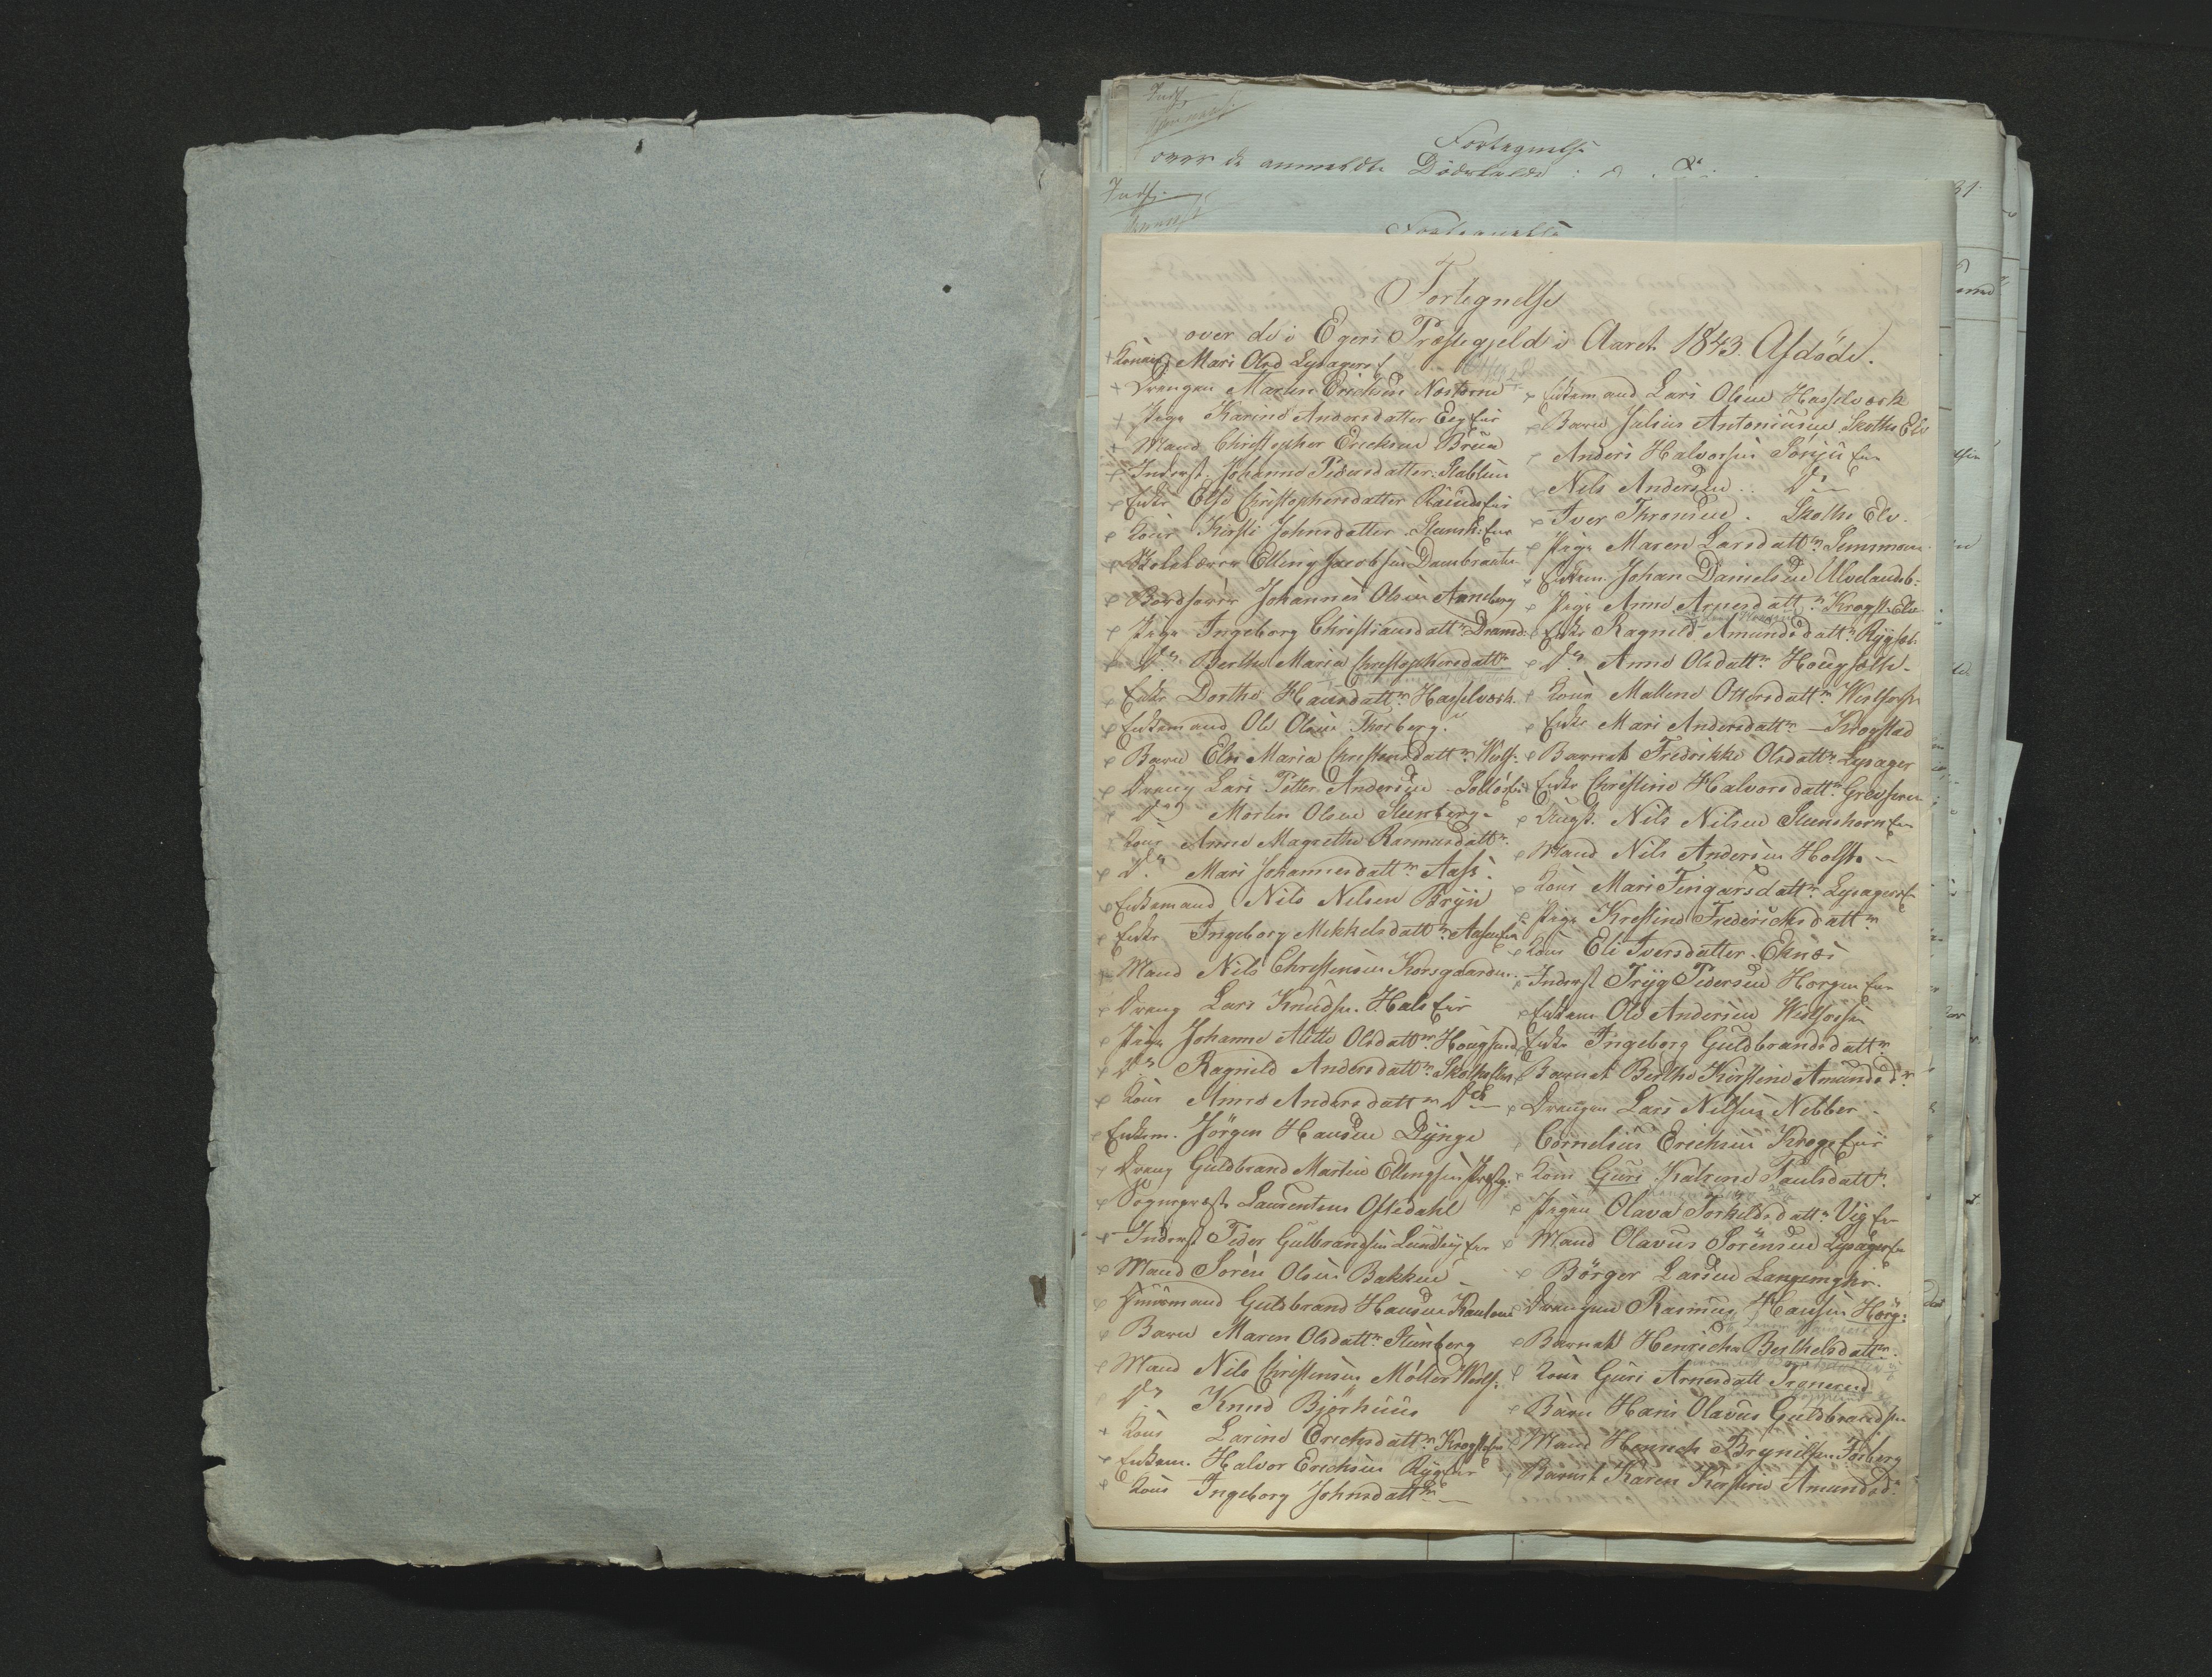 Fortegnelse
over de anmeldte Dödsfalde i
Indf.
Fortegnelse
Fortegnelse
over de i Egers Præstegjeld i Aaret 1843 Afdöde.
Konen Mari Olsd Lysagere
Drengen Martin Erichsen
Pige Karine Andersdatter Eeg Eier
Mand Christopher Erichsen Bruun
Inderst. Johanne Pedersdatter Stablum
Enke Else Christophersdatter
Kone Kirsti Johnsdatter Steensh: Eier
Skolelærer Elling Jacobsen Dambraaten
Johannes Olsen Anneberg
Pige Ingeborg Christiansdattr Dramd:
Do Berthe Maria Christophersdattr
Enke Dorthe Hansdattr Hasselværk
Enkemand Ole Olsen Thorberg
Barn Elen Maria Christensdattr Westf:
Dreng Lars Petter Andersen
Do Morten Olsen Steenberg
Kone Anne Magrethe Rasmusdattr
Do Mari Johannesdattr Aass
Enkemand Nils Nilsen Bryn
Enke Ingeborg Mikkelsdattr
Mand Nils Christensen Korsgaarden
Dreng Lars Knudsen Hals Eier
Pige Johanne Alette Olsdattr Hougsund
Do Ragnild Andersdattr Skotselv
Kone Anne Andersdattr Do
Enkem. Jörgen Hansen Dynge
Dreng Guldbrand Martin Ellingsen Præstg:
Sognepræst Laurentius Oftedahl
Inderst Peder Gulbrandsen Lundby Eier
Mand Sören Olsen Bakken
Huusmand Guldbrand Hansen
Barn Maren Olsdattr Steenberg
Mand Nils Christensen Möller Westf:
Do Knud Bjørhuus
Kone Larine Erichsdattr Krogst Eier
Enkem. Halvor Erichsen Ryg Eier
Kone Ingeborg Johnsdattr
Enkemand Lars Olsen Hasselværk
Barn Julius Antoniusen Skotse Elv
Anders Halvorsen Sönju Eier
Nils Andersen Do
Iver Thronsen Skotse Elv.
Pige Maren Larsdattr Semsmoen
Enkem. Johan Danielsen Ulvelandsb:
Pige Anne Arnesdattr Krogst. Elv
Enke Ragnild Amundsdattr
Do Anne Olsdattr
Kone Mallene Ottersdattr Westfossen
Enke Mari Andersdattr Krogstad
Barnet Fredrikke Olsdattr Lysager
Enke Christine Halvorsdattr
Nils Nilsen Steenshorn Eier
Mand Nils Andersen Holst
Kone Mari Fingarsdattr Lysagere
Pige Kristine Frederichsdattr
Kone Eli Iversdatter Eknæs
Inderst Tryg Pedersen Horgen Eier
Enkem Ole Andersen Westfossen
Enke Ingeborg Guldbrandsdattr
Barnet Berthe Kirstine Amundsdr
Drengen Lars Nilsen Nebber
Cornelius Erichsen Krogs Eier
Kone Guri Katrine Paulsdattr
Pigen Olava Torkildsdattr Vig Eier
Mand Olavus Sörensen Lysager Eier
Börger Larsen Langemyhr.
Drengen Rasmus Hansen Horg:
Barnet Henricha Berthelsdattr
Kone Guri Arnesdatt
Barn Hans Olavus Guldbrandsen
Mand Henrich Brynilsen Fosberg
Barnet Karen Kirstine Amundsd: